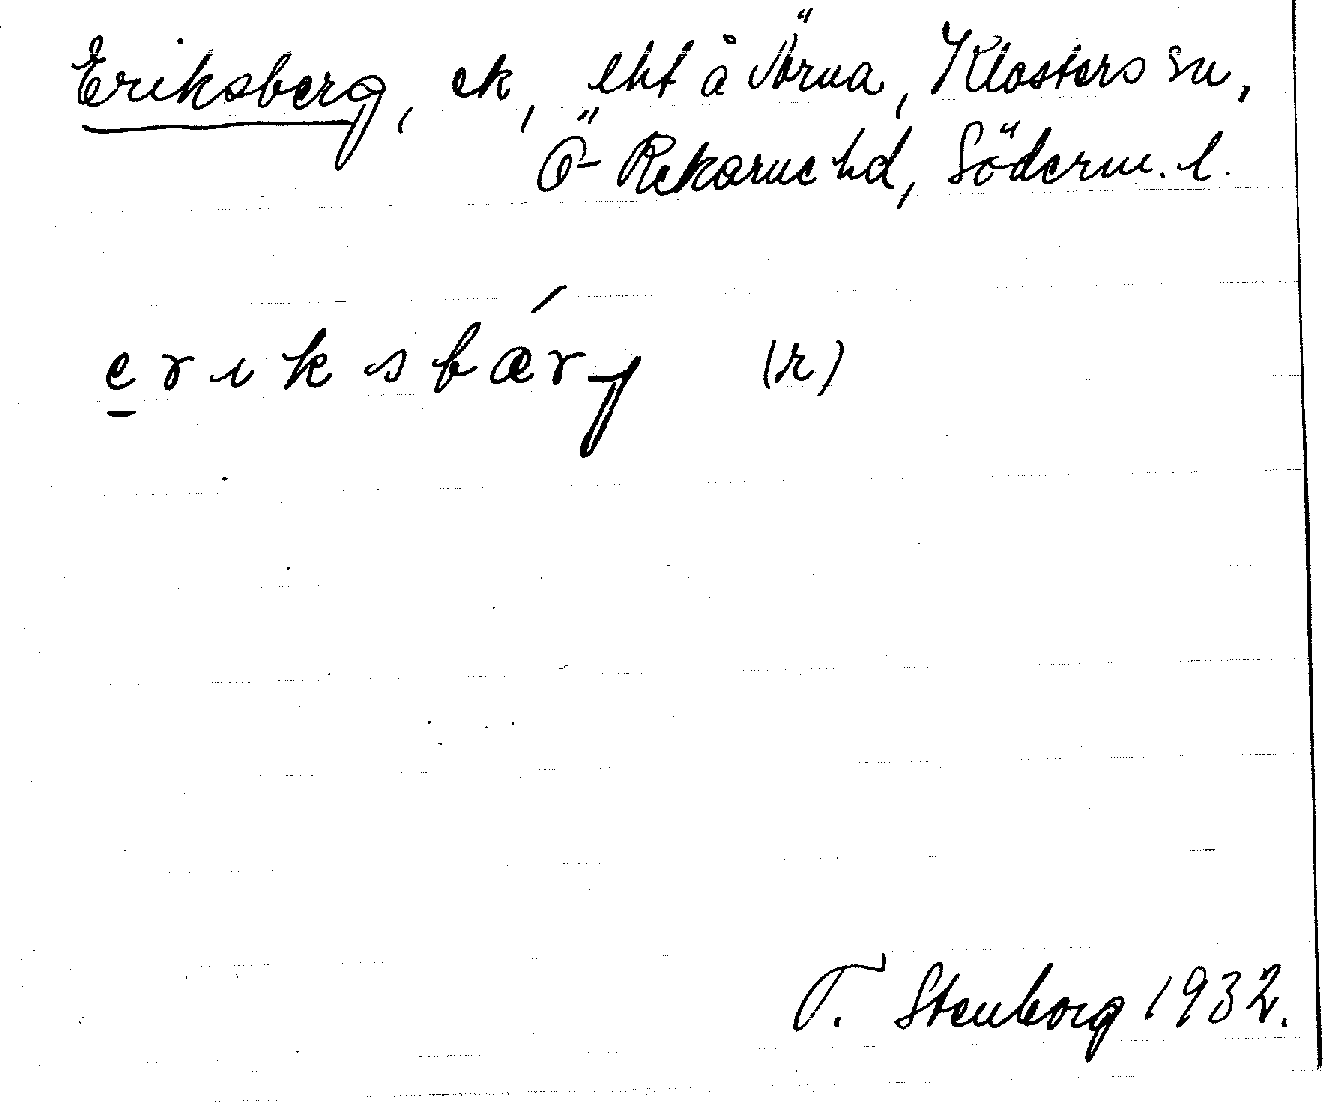 Eriksberg, ek, lht å Ärna, Klosters sn,
Ö Rekarne hd, Söderm. l.
e̲rɩksbǽrj (r)
T. Stenborg 1932.